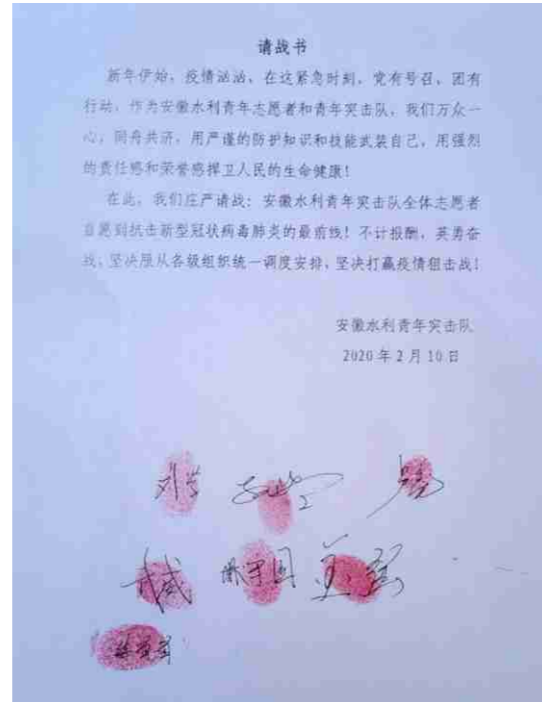 请战书
新年伊始，疫情汹汹，在这紧急时刻，党有号召、团有
行动，作为安徽水利青年志愿者和青年突击队，我们万众一
心，同舟共济，用严谨的防护知识和技能武装自己，用强烈
的责任感和荣誉感捍卫人民的生命健康！
在此，我们庄严请战：安徽水利青年突击队全体志愿者
自愿到抗击新型冠状病毒肺炎的最前线！不计报酬，英勇奋
战，坚决服从各级组织统一调度安排，坚决打赢疫情狙击战！
安徽水利青年突击队
2020年2月10日